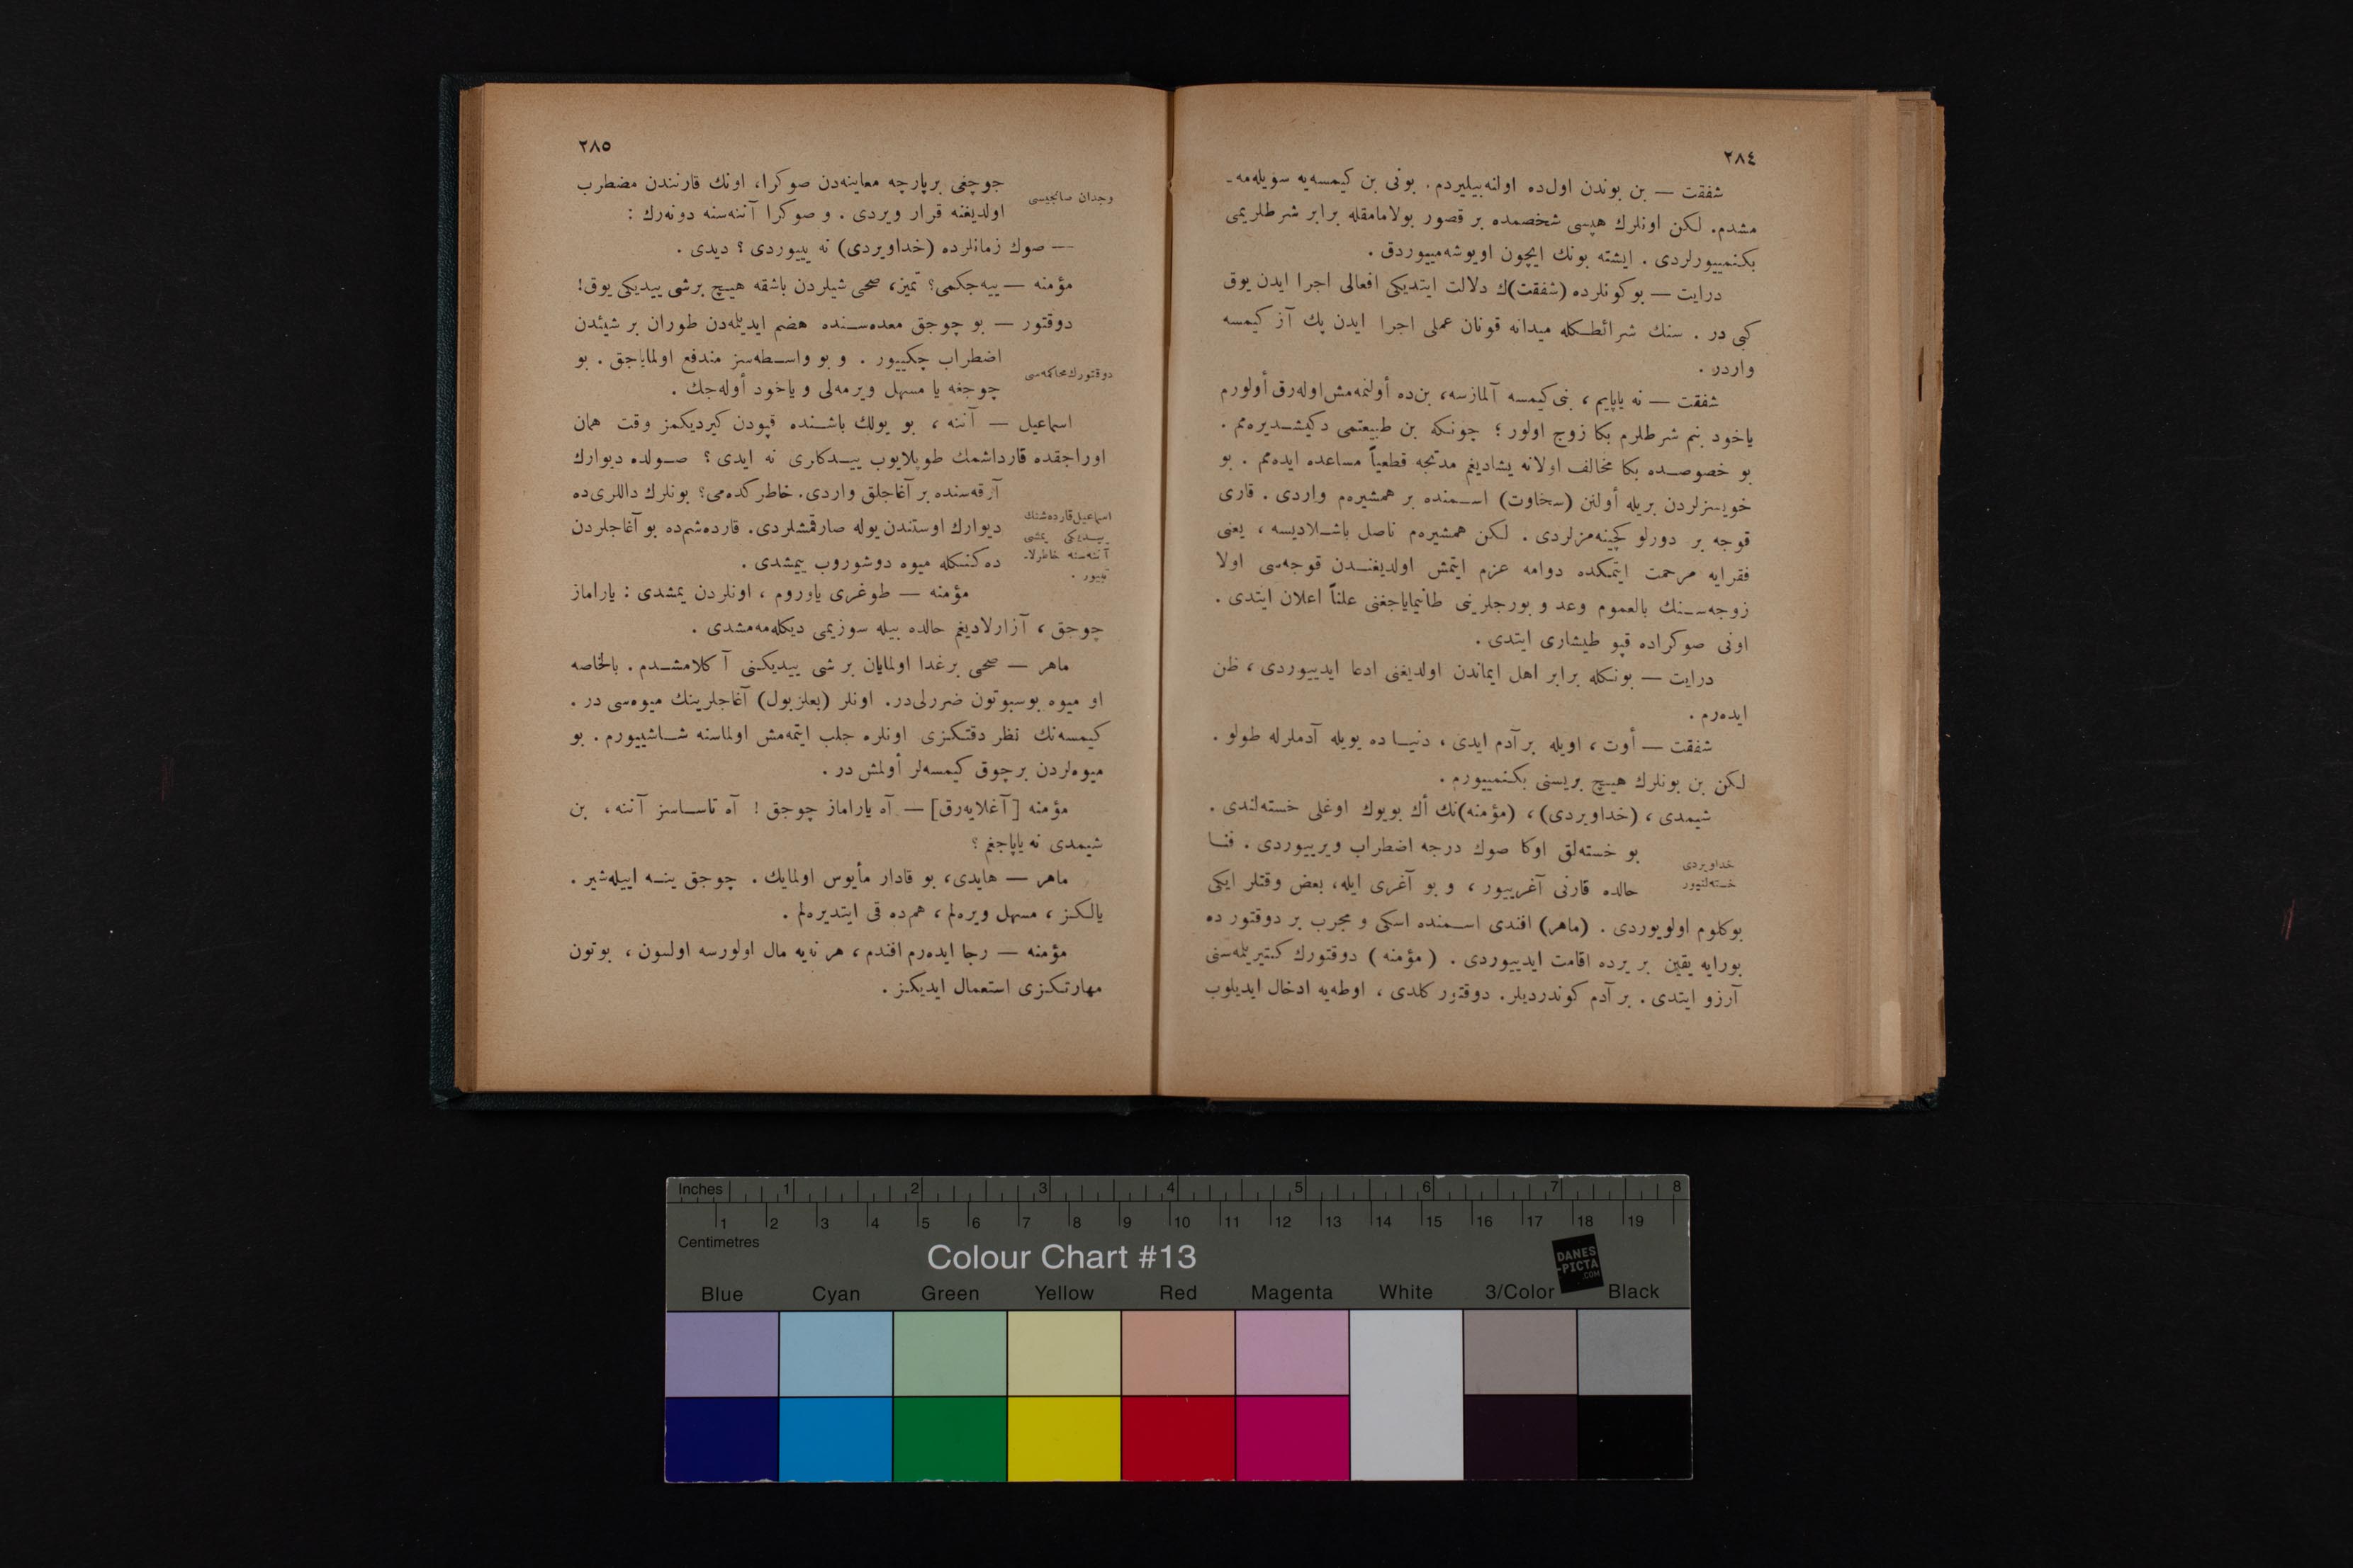 ٢٨٤
شفقت — بن بوندن اول‌ده اولنه‌بیلیردم. بونی بن كیمسه‌یه سویله‌مه‌ـ
مشدم. لكن اونلرك هپسی شخصمده بر قصور بولامامقله برابر شرطلریمی
بكنمییورلردی . ایشته بونك ایچون اویوشه‌مییوردق .
درایت — بوكونلرده (شفقت)ك دلالت ایتدیكی افعالی اجرا ایدن یوق
كبی در . سنك شرائطـكله میدانه قونان عملی اجرا ایدن پك آز كیمسه
واردر .
شفقت — نه یاپایم ، بنی كیمسه آلمازسه، بن‌ده أولنمه‌مش اوله‌رق أولورم
یاخود بنم شرطلرم بكا زوج اولور ؛ چونكه بن طبیعتمی دكیشـدیره‌مم .
بو خصوصـده بكا مخالف اولانه یشادیغم مدتجه قطعیاً مساعده ایده‌مم . بو
خویسزلردن بریله أولنن (سخاوت) اسـمنده بر همشیره‌م واردی . قاری
قوجه بر دورلو كچینه‌مزلردی . لكن همشیره‌م ناصل باشـلادیسه ، یعنی
فقرایه مرحمت ایتمكده دوامه عزم ایتمش اولدیغنـدن قوجه‌سی اولا
زوجه‌سـنك بالعموم وعد و بورجلرینی طانیمایاجغنی علناً اعلان ایتدی .
اونی صوكراده قپو طیشاری ایتدی .
درایت — بونكله برابر اهل ایماندن اولدیغنی ادعا ایدییوردی ، ظن
ایده‌رم .
شفقت — أوت ، اویله بر آدم ایدی ، دنیـا ده بویله آدملرله طولو .
لكن بن بونلرك هیـچ بریسنی بكنمییورم .
شیمدی ، (خداویردی) ، (مؤمنه)نك أك بویوك اوغلی خسته‌لندی .
بو خسته‌لق اوكا صوك درجه اضطراب ویرییوردی . فنـا
خداویردی
خسته‌لنیور
حالده قارنی آغرییور ، و بو آغری ایله، بعض وقتلر ایكی
بوكلوم اولویوردی . (ماهر) افندی اسـمنده اسكی و مجرب بر دوقتور ده
بورایه یقین بر یرده اقامت ایدییوردی . (مؤمنه) دوقتورك كتیریلمه‌سنی
آرزو ایتدی . بر آدم كوندردیلر . دوقتور كلدی ، اوطه‌یه ادخال ایدیلوب
٢٨٥
چوجغی برپارچه معاینه‌دن صوكرا، اونك قارنندن مضطرب
وجدان صانجیسی
اولدیغنه قرار ویردی . و صوكرا آننه‌سنه دونه‌رك :
— صوك زمانلرده (خداویردی) نه یییوردی ؟ دیدی .
مؤمنه — ییه‌جكمی؟ تمیز، صحی شیلردن باشقه هیـچ برشی ییدیكی یوق!
دوقتور — بو چوجق معده‌سـنده هضم ایدیلمه‌دن طوران بر شیئدن
اضطراب چكییور . و بو واسـطه‌سز مندفع اولمایاجق . بو
دوقتورك محاكمه‌سی
چوجغه یا مسهل ویرمه‌لی و یاخود أوله‌جك .
اسماعیل — آننه ، بو یولك باشـنده قپودن كیردیكمز وقت همان
اوراجقده قارداشمك طوپلایوب ییـدكلری نه ایدی ؟ صـولده دیوارك
آرقه‌سنده بر آغاجلق واردی. خاطركده‌می؟ بونلرك داللری‌ده
دیوارك اوستندن یوله صارقمشلردی. قارده‌شم‌ده بو آغاجلردن
اسماعیل قارده‌شنك
ییـدیكی یمشی
آننه‌سنه خاطرلاـ
تییور .
ده كندیكله میوه دوشوروب ییمشدی .
مؤمنه — طوغری یاوروم ، اونلردن یمشدی : یاراماز
چوجق ، آزارلادیغم حالده بیله سوزیمی دیكله‌مه‌مشدی .
ماهر — صحی برغدا اولمایان بر شی ییدیكـنی آكلامشـدم . بالخاصه
او میوه بوسبوتون ضررلی‌در. اونلر (بعلزبول) آغاجلرینك میوه‌سی در .
كیمسه‌نك نظر دقتكزی اونلره جلب ایتمه‌مش اولماسنه شـاشییورم . بو
میوه‌لردن بر چوق كیمسه‌لر أولمش در .
مؤمنه [آغلایه‌رق] — آه یاراماز چوجق ! آه تاسـاسز آننه ، بن
شیمدی نه یاپاجغم ؟
ماهر — هایدی، بو قادار مأیوس اولمایك . چوجق ینـه اییله‌شیر .
یالكز ، مسهل ویره‌لم ، هم‌ده قی ایتدیره‌لم .
مؤمنه — رجا ایده‌رم افندم ، هر نه‌یه مال اولورسه اولسون ، بوتون
مهارتكزی استعمال ایدیكز .
Inches 1 2 3 4 5 6 7 8
1 2 3 4 5 6 7 8 9 10 11 12 13 14 15 16 17 18 19
Centimetres
Colour Chart #13
DANES
-PICTA
.COM
Blue Cyan Green Yellow Red Magenta White 3/Color Black